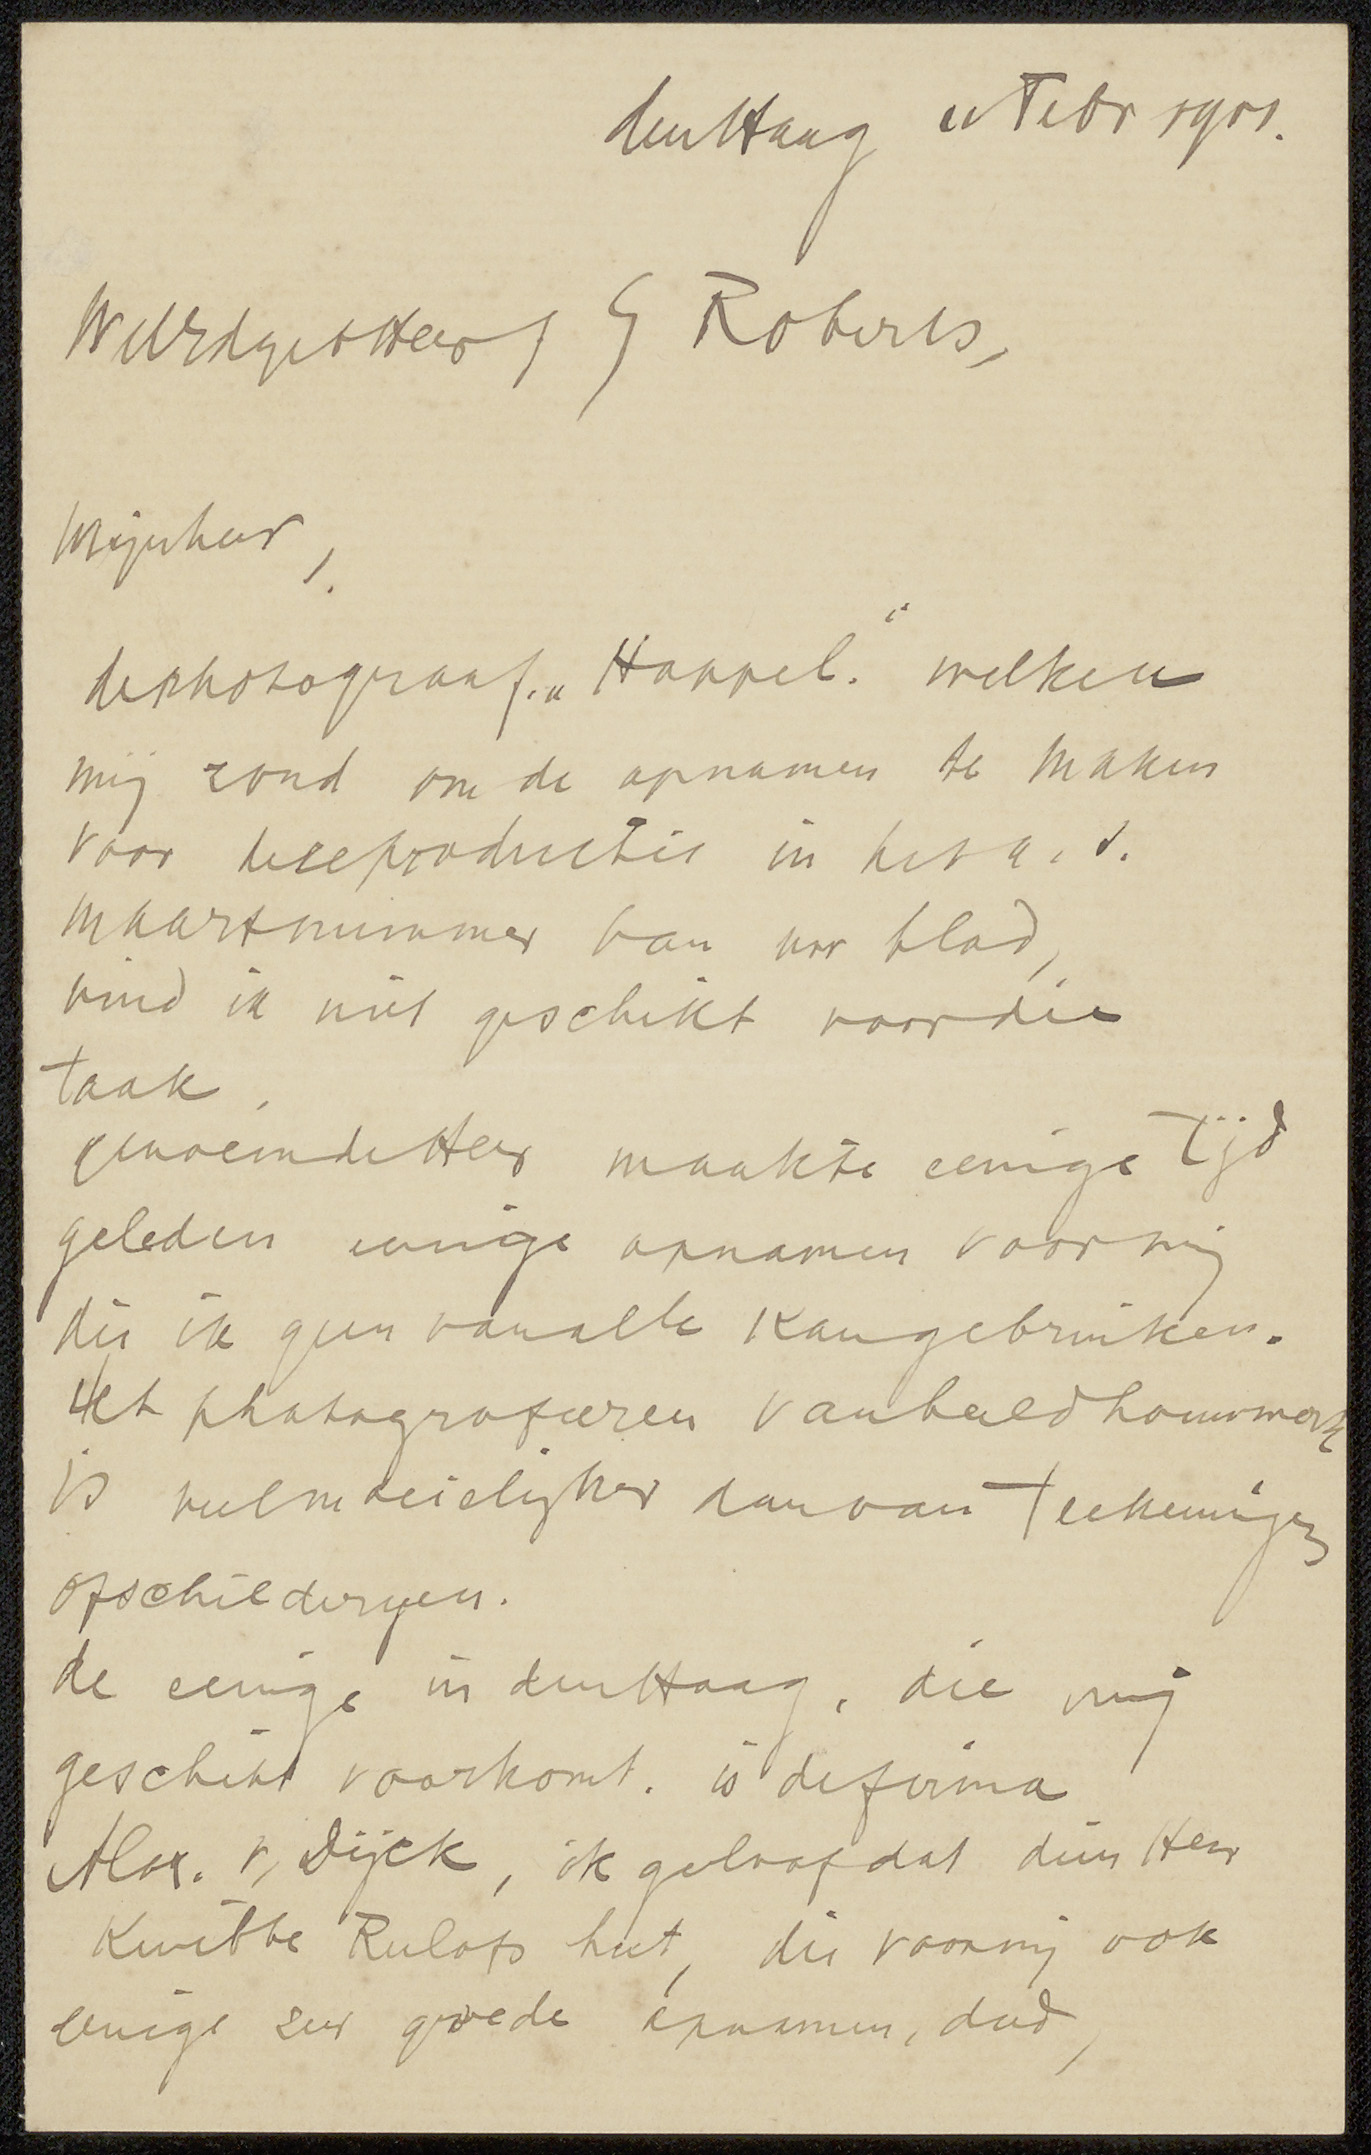 den Haag 11 Febr 1901.
WelEdgeb Heer J G Roberts,
Mijnheer,
de photograaf. „Happel." welken
mij zond om de opnamen te maken
voor de reproductie in het a. s.
maartnummer van uw blad,
vind ik niet geschikt voor die
taak.
genoemde Heer maakte eenige Tijd
geleden eenige opnamen voor mij
die ik geen van alle kan gebruiken.
Het photografieren van beeldhouwwerk
is veel moeielijker dan van Teekeningen
of schilderyen.
de eenige in den Haag, die mij
geschikt voorkomt. is de firma
Alex. v, Dijck, ik geloof dat dien Heer
Rulofs heet, die voor mij ook
eenige zeer goede opnamen, deed,